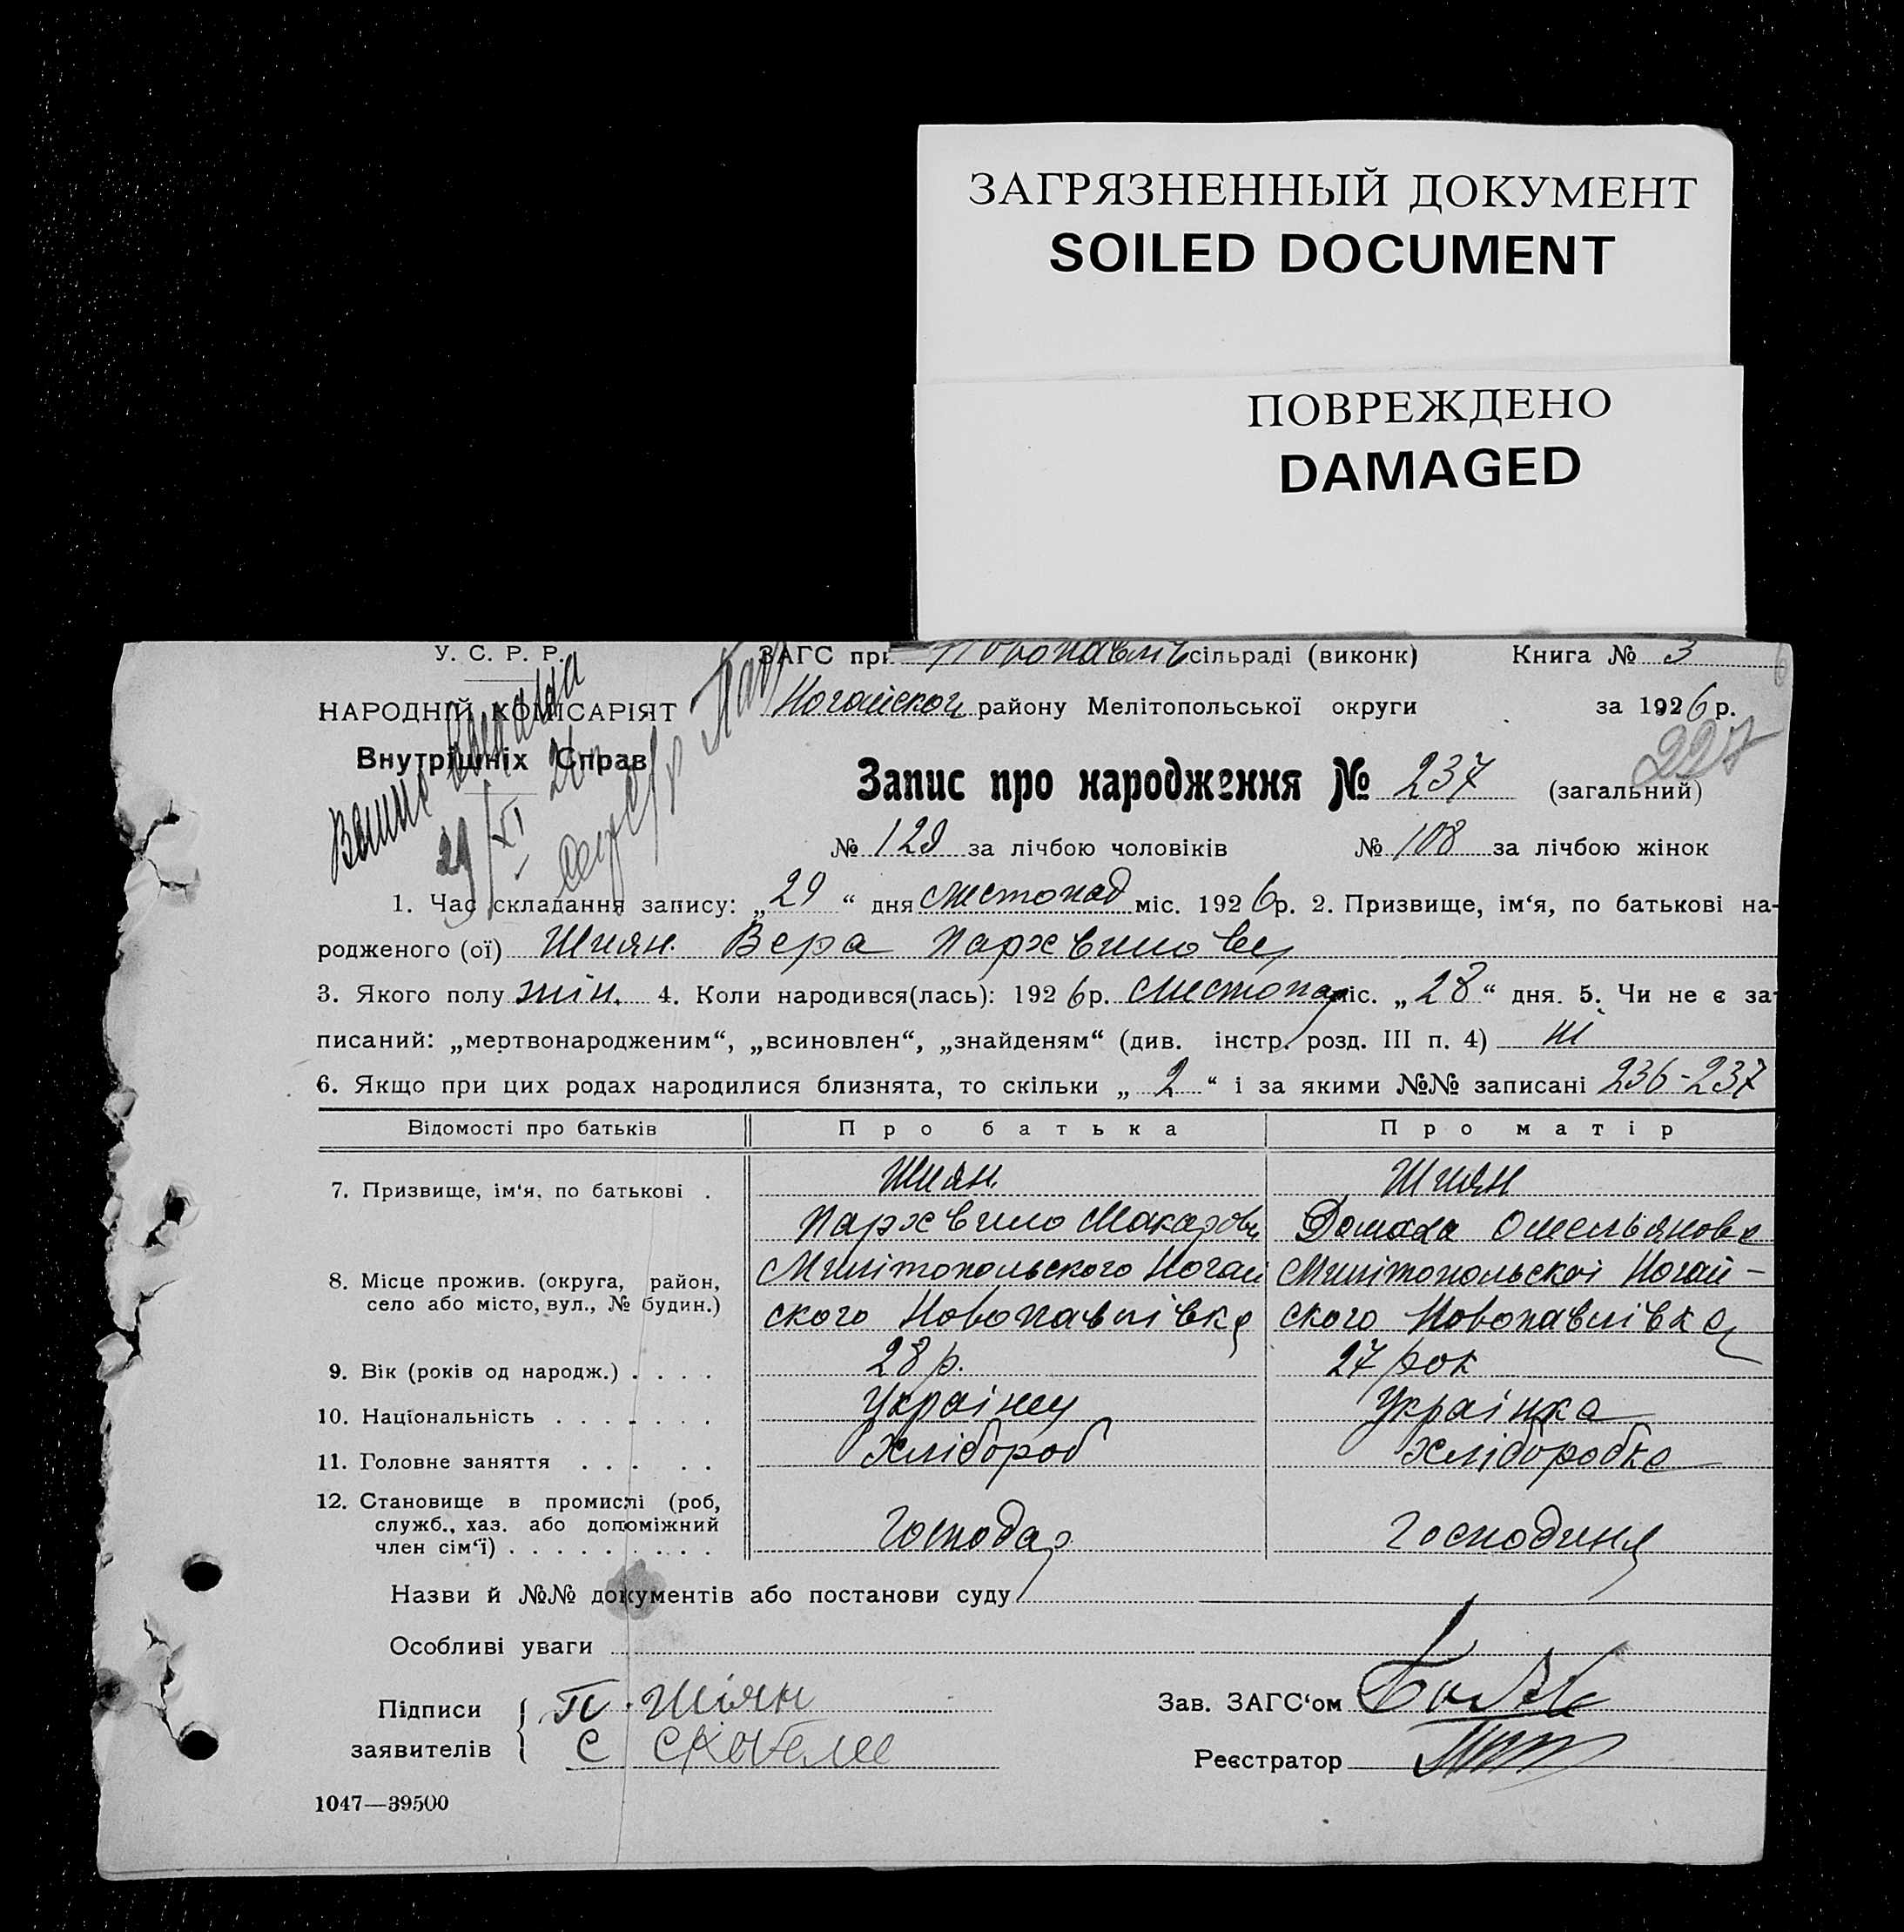 ЗАГРЯЗНЕННЫЙ ДОКУМЕНТ
SOILED DOCUMENT
ПОВРЕЖДЕНО
DAMAGED
У. С. Р. Р.
НАРОДНІЙ КОМІСАРІЯТ
Внутрішніх Справ
29/XI
ЗАГС при Новопавлів сільраді (виконк) Книга № 3
Ногайског району Мелітопольської округи за 1926 р.
227
Запис про народження № 237 (загальний)
№ 129 за лічбою чоловіків № 108 за лічбою жінок
1. Час складання запису: „29“ дня листопад міс. 1926 р. 2. Призвище, ім‘я, по батькові на-
родженого (ої) Шиян Вера Пархвиловец
3. Якого полу жін. 4. Коли народився(лась): 1926 р. листопад міс. „28“ дня. 5. Чи не є за-
писаний: „мертвонародженим“, „всиновлен“, „знайденям“ (див. інстр. розд. III п. 4) ні
6. Якщо при цих родах народилися близнята, то скільки „2“ і за якими №№ записані 236-237
Відомості про батьків Про батька Про матір
7. Призвище, ім‘я, по батькові . Шиян. Шиян
Пархвило Макарови Домаха Омельянова
8. Місце прожив. (округа, район, село або місто, вул., № будин.) Милітопольского Ногай Милітопольскоі Ногай-
ского Новопавлівка ского Новопавлівка
9. Вік (років од народж.) . . . . 28 р. 27 рок
10. Національність . . . . . . . Українец Українка
11. Головне заняття . . . . . Хлібороб Хліборобка
12. Становище в промислі (роб,
служб., хаз. або допоміжний
член сім‘ї) . . . . . . . . . Господар Господиня
Назви й №№ документів або постанови суду
Особливі уваги
Підписи заявителів П. Шіян
Зав. ЗАГС‘ом
Реєстратор
1047—39500